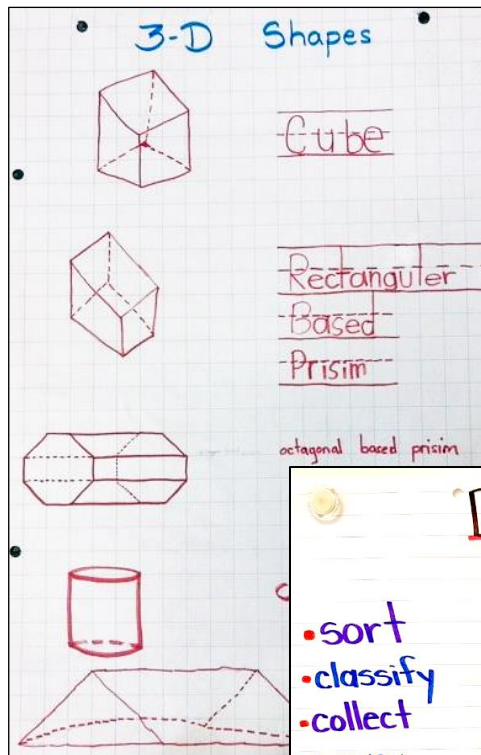 3-D Shapes
Cube
Rectanguler
Based
Prisim
octagonal based prisim
• sort
• classify
• collect